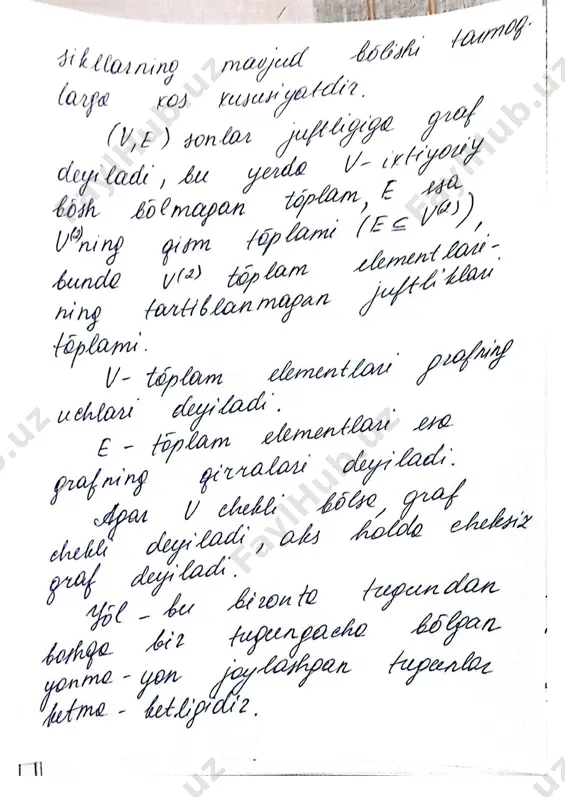 sikllarning mavjud bõlishi tarmoq-
larga xos xususiyatdir.
(V,E) sonlar juftligiga graf
deyiladi, bu yerda V-ixtiyoriy
bõsh bõlmagan tõplam, E esa
V⁽²⁾ning qism tõplami (E ⊆ V⁽²⁾),
bunda V⁽²⁾ tõplam elementlari-
ning tartiblanmagan juftliklari
tõplami.
V- tõplam elementlari grafning
uchlari deyiladi.
E - tõplam elementlari esa
grafning qirralari deyiladi.
Agar V chekli bõlsa, graf
chekli deyiladi, aks holda cheksiz
graf deyiladi.
Yõl - bu bironta tugundan
boshqa bir tugungacha bõlgan
yonma-yon joylashgan tugunlar
ketma-ketligidir.
FaylHub.uz